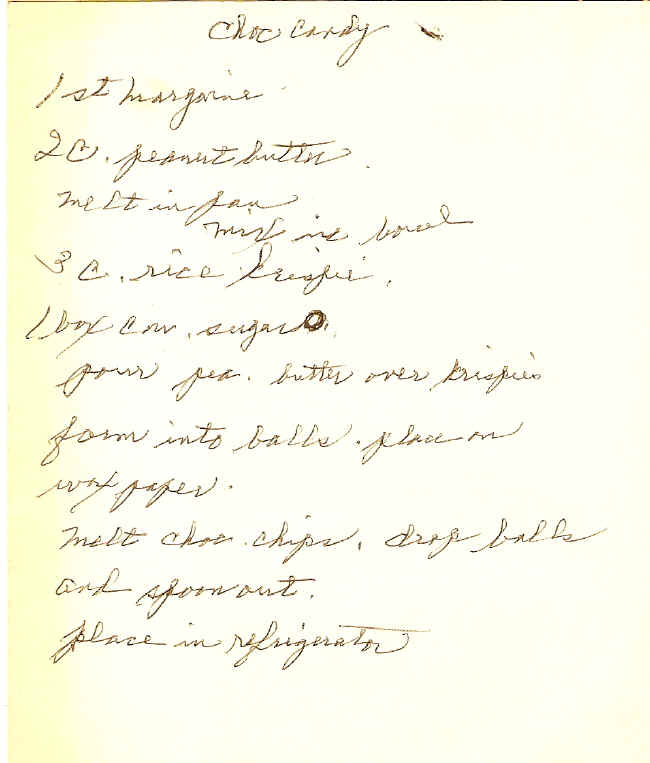 Choc Candy
1 st margarine
2 C. peanut butter
melt in pan
mix in bowl
3 C. rice krispie.
1 box con. sugar.
pour pea. butter over krispies
form into balls. place on
wax paper.
Melt choc. chips. drop balls
and spoon out.
place in refrigerator